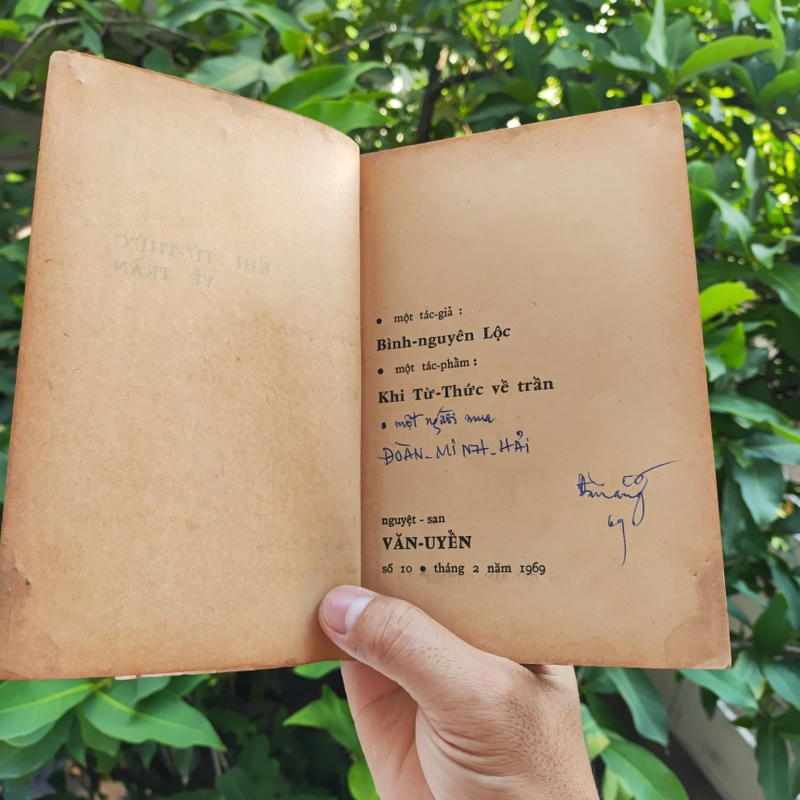 KHI TỪ-THỨC
VỀ TRẦN
• một tác-giả :
Bình-nguyên Lộc
• một tác-phẩm :
Khi Từ-Thức về trần
• một người mua
ĐOÀN-MINH-HẢI
Đà nẵng
69
nguyệt - san
VĂN-UYỂN
số 10 • tháng 2 năm 1969